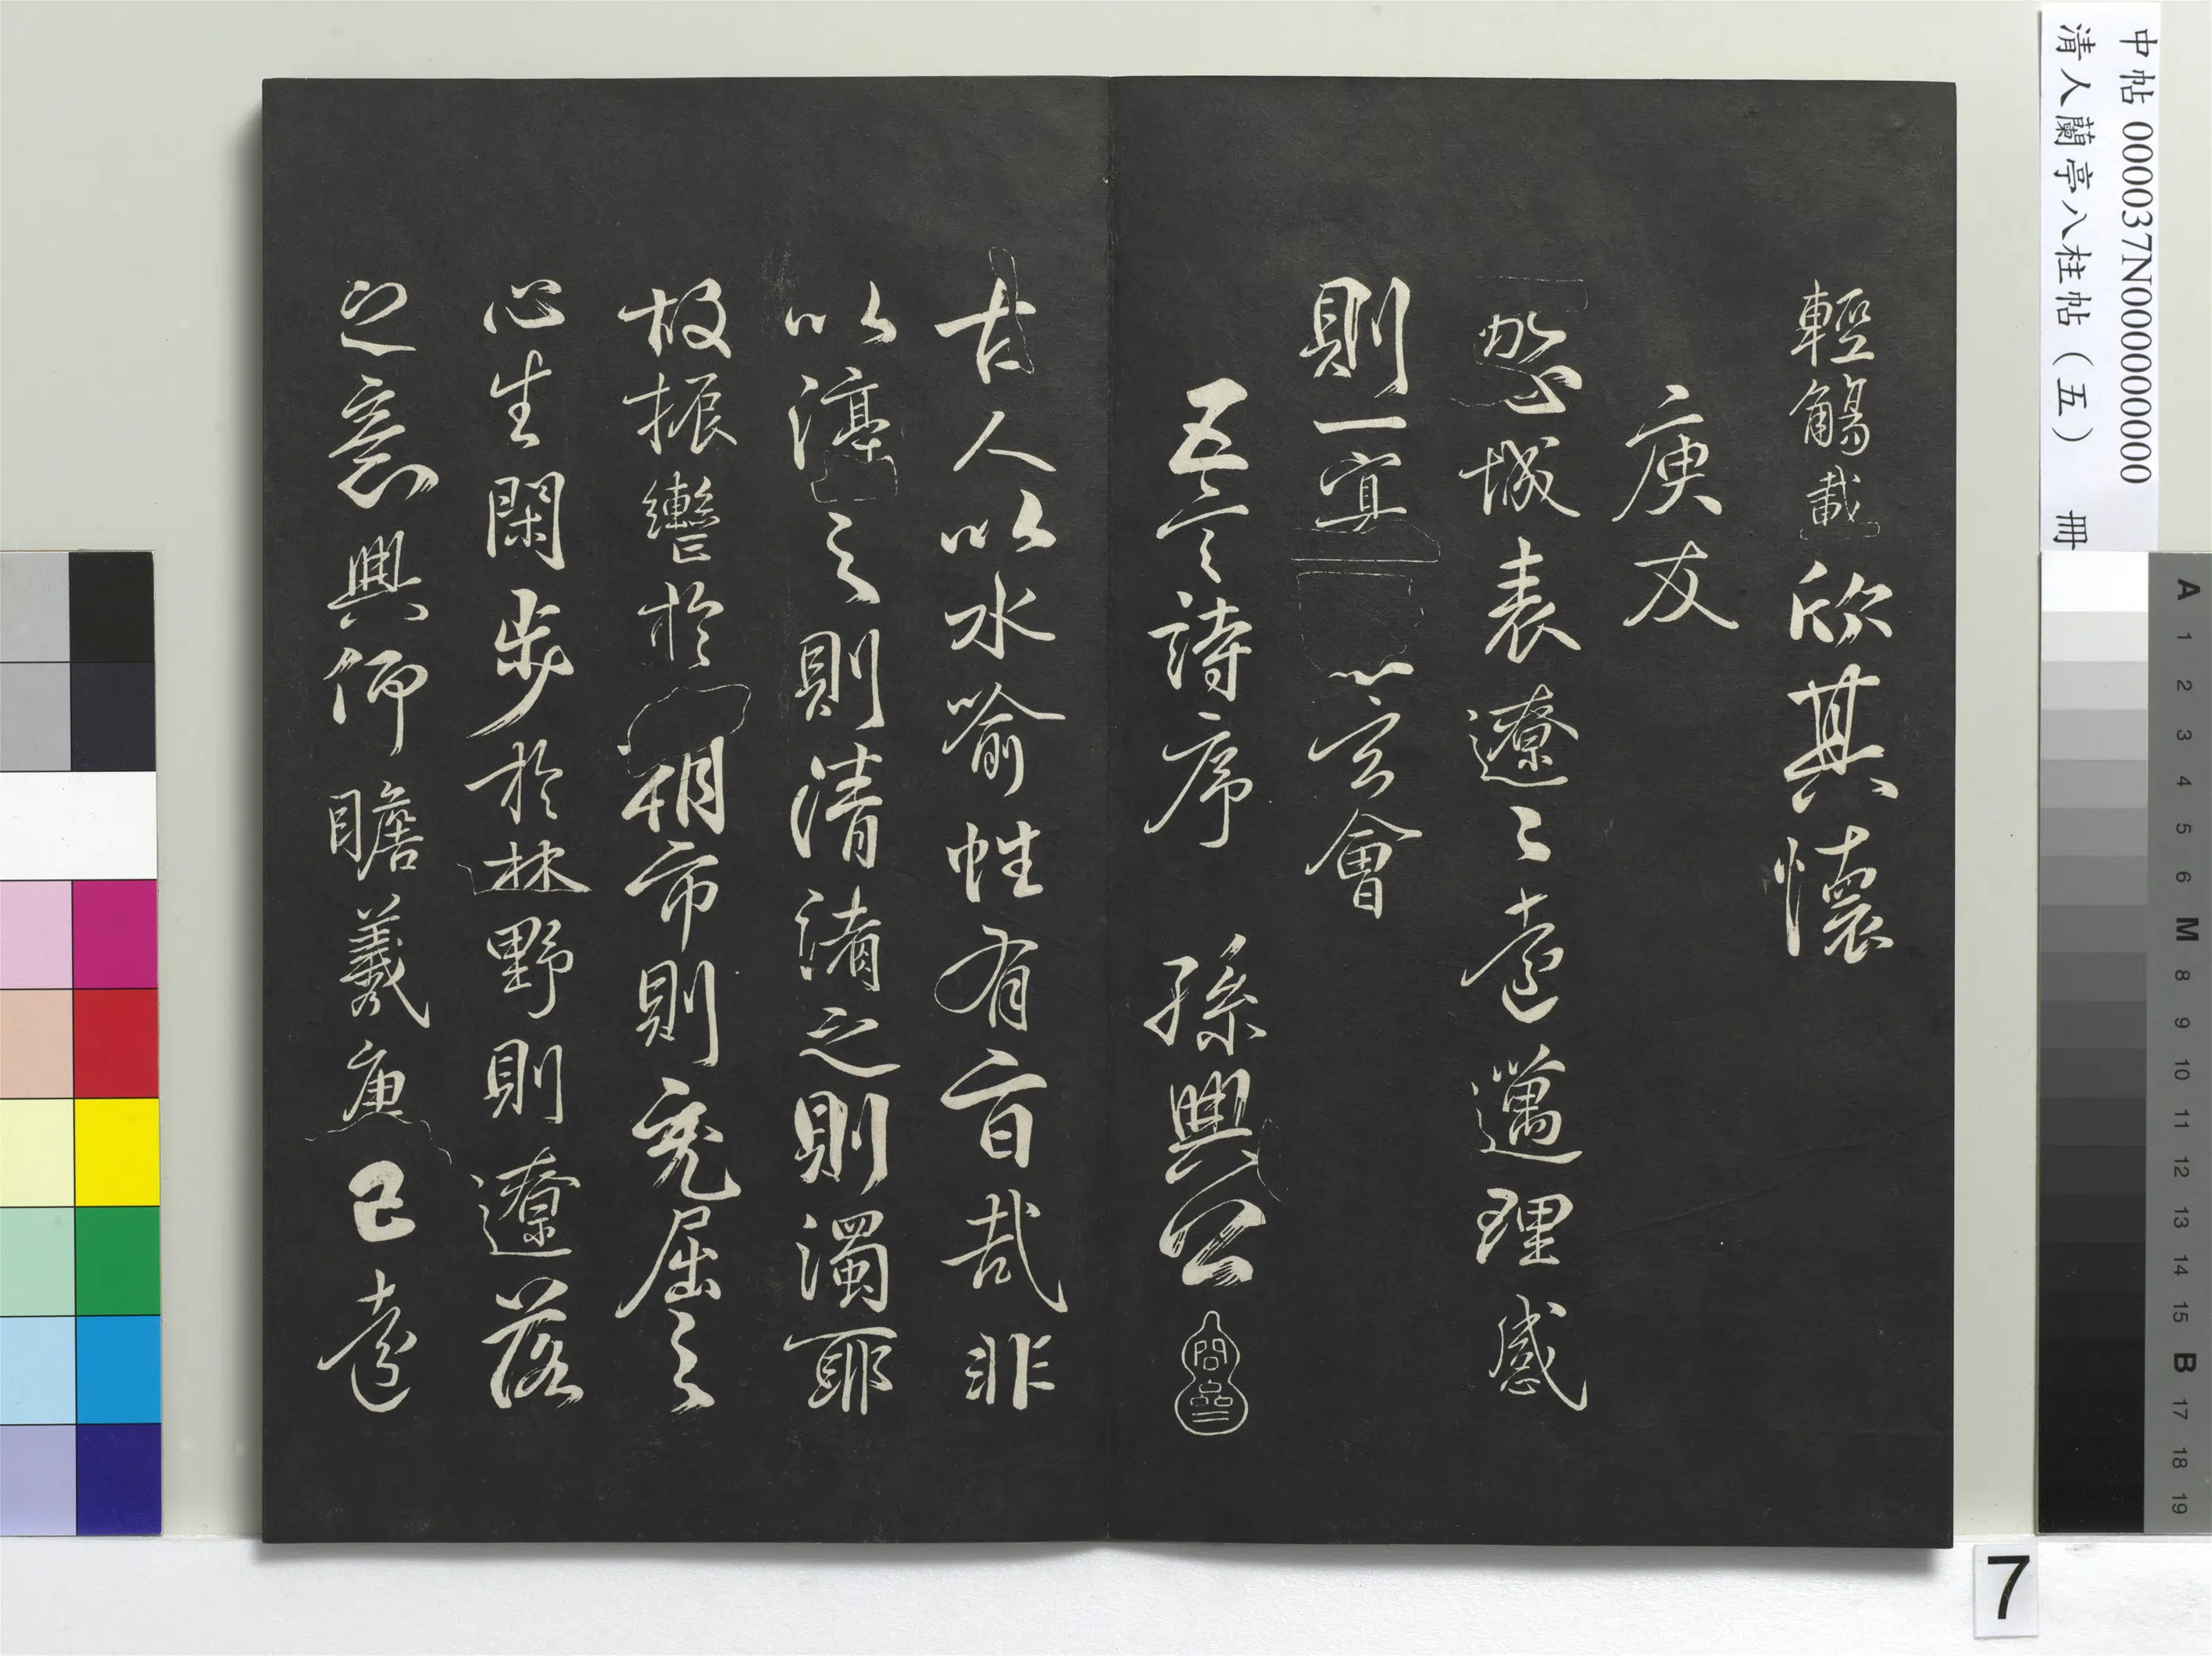 中帖 000037N000000000
清人蘭亭八柱帖（五） 冊
輕觴載欣其懷
庾友
心域表遼〻遠邁理感
則一冥玄會
五言詩序 孫興公
古人以水喻性有旨哉非
以渟之則清淆之則濁耶
故振轡於朝市則充屈之
心生閑步於林野則遼落
之意興仰瞻羲唐已遠
A 1 2 3 4 5 6 M 8 9 10 11 12 13 14 15 B 17 18 19
7